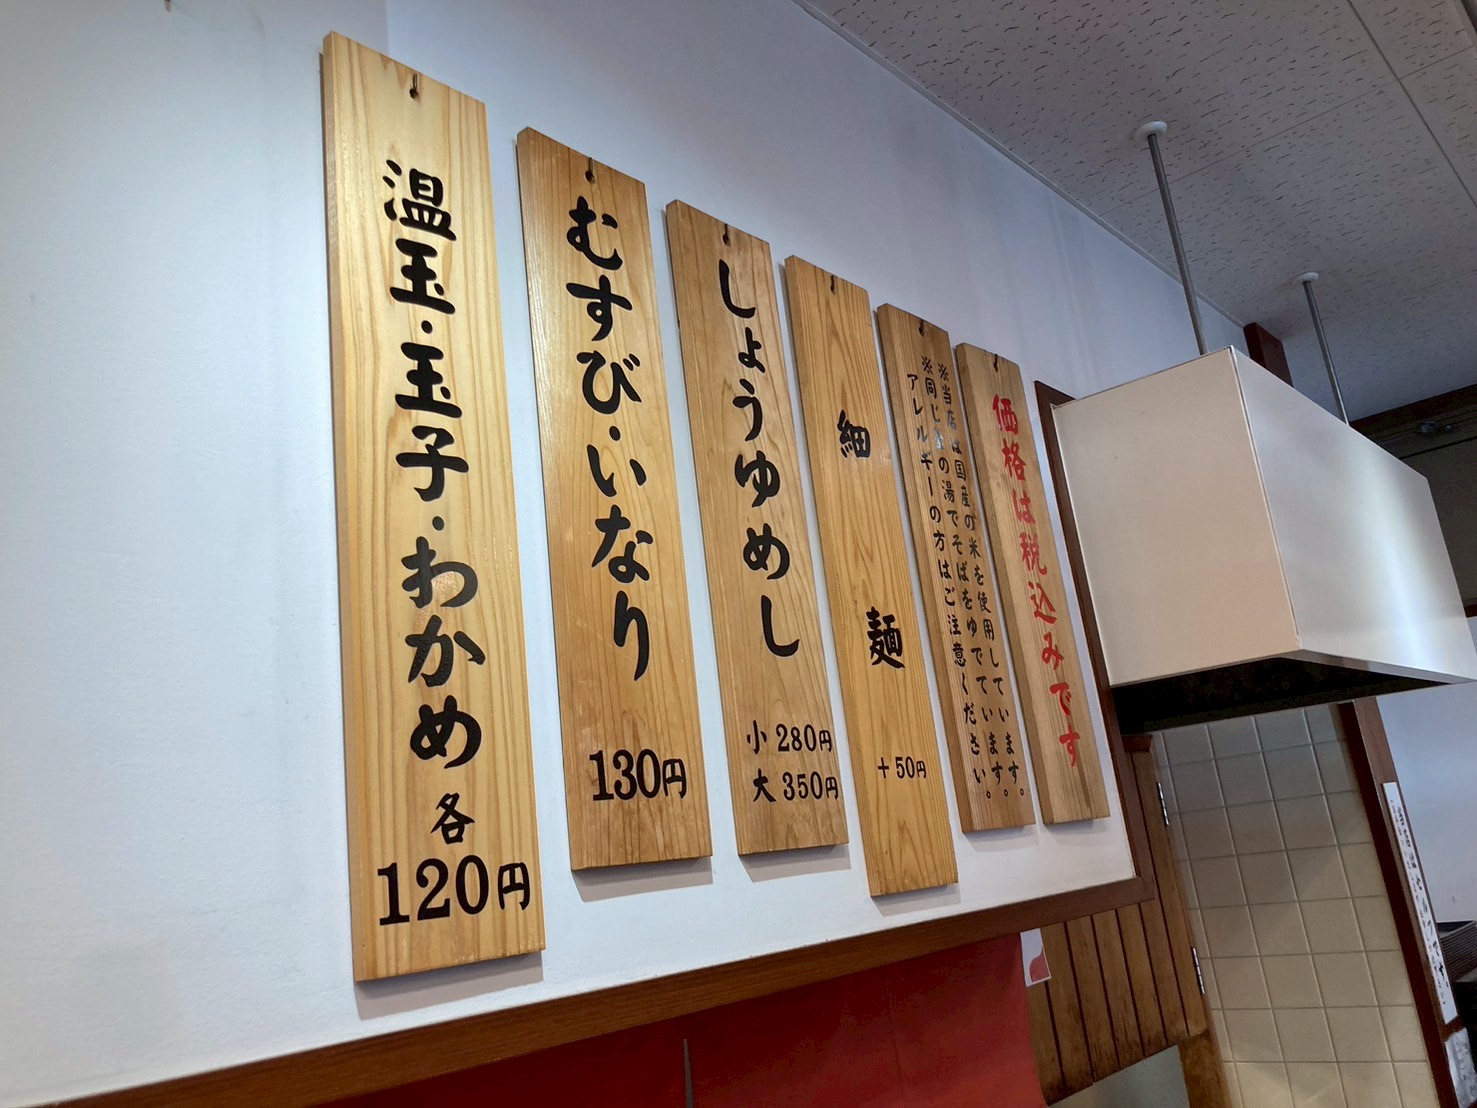 温玉・玉子・わかめ 各
120円
むすび・いなり
130円
しょうゆめし
小 280円
大 350円
細麺
+50円
※当店は国産の米を使用しています。
※同じ釜の湯でそばをゆでています。
アレルギーの方はご注意ください。
価格は税込みです